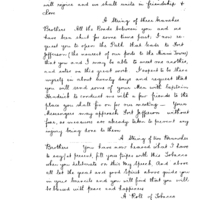 will expire and we shall unite in friendship &
Love
A String of three Branches
Brothers All the Roads between you and us
have been shut for some time past, I now re-
quest you to open the Path that leads to Fort
Jefferson (the nearest of our forts to the Miami Towns)
that you and I may be able to meet one another,
and enter on this great work. I expect to be there
myself in about twenty days and request that
you will send some of your Men with Captain
Hendrick to conduct me with a few friends to the
place you shall fix on for our meeting — Your
Messengers may approach Fort Jefferson without
fear, as measures are already taken to prevent any
injury being done to them
A String of ten Branches
Brothers You have now heard what I have
to say at present, fill your pipes with this Tobacco
when you deliberate on this My speech. And above
all let the great and good Spirit above guide you
in your Councils and you will find that you will
be blessed with peace and happiness
A Roll of Tobacco